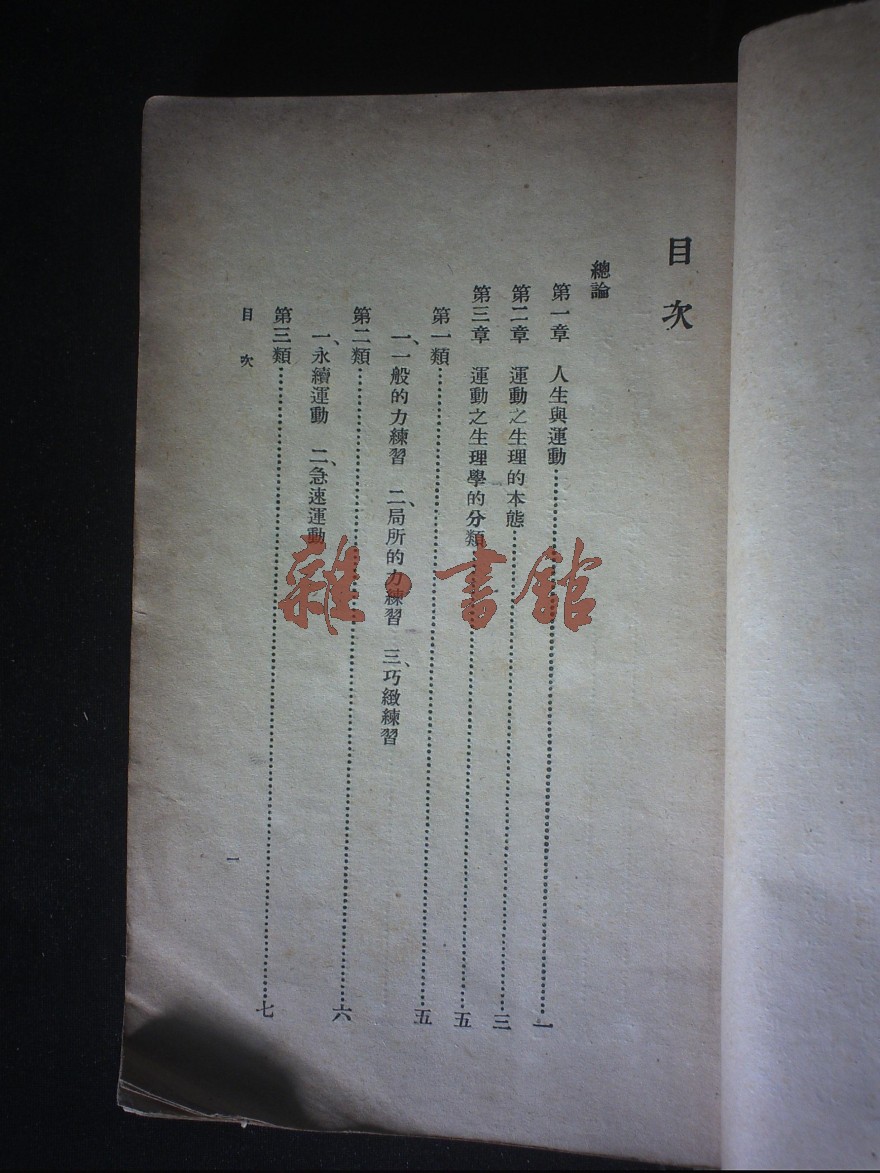 目次
總論
第一章 人生與運動……一
第二章 運動之生理的本態……三
第三章 運動之生理學的分類……五
第一類……五
一、一般的力練習 二、局所的力練習 三、巧緻練習
第二類……六
一、永續運動 二、急速運動
第三類……七
目次 一
雜·書館